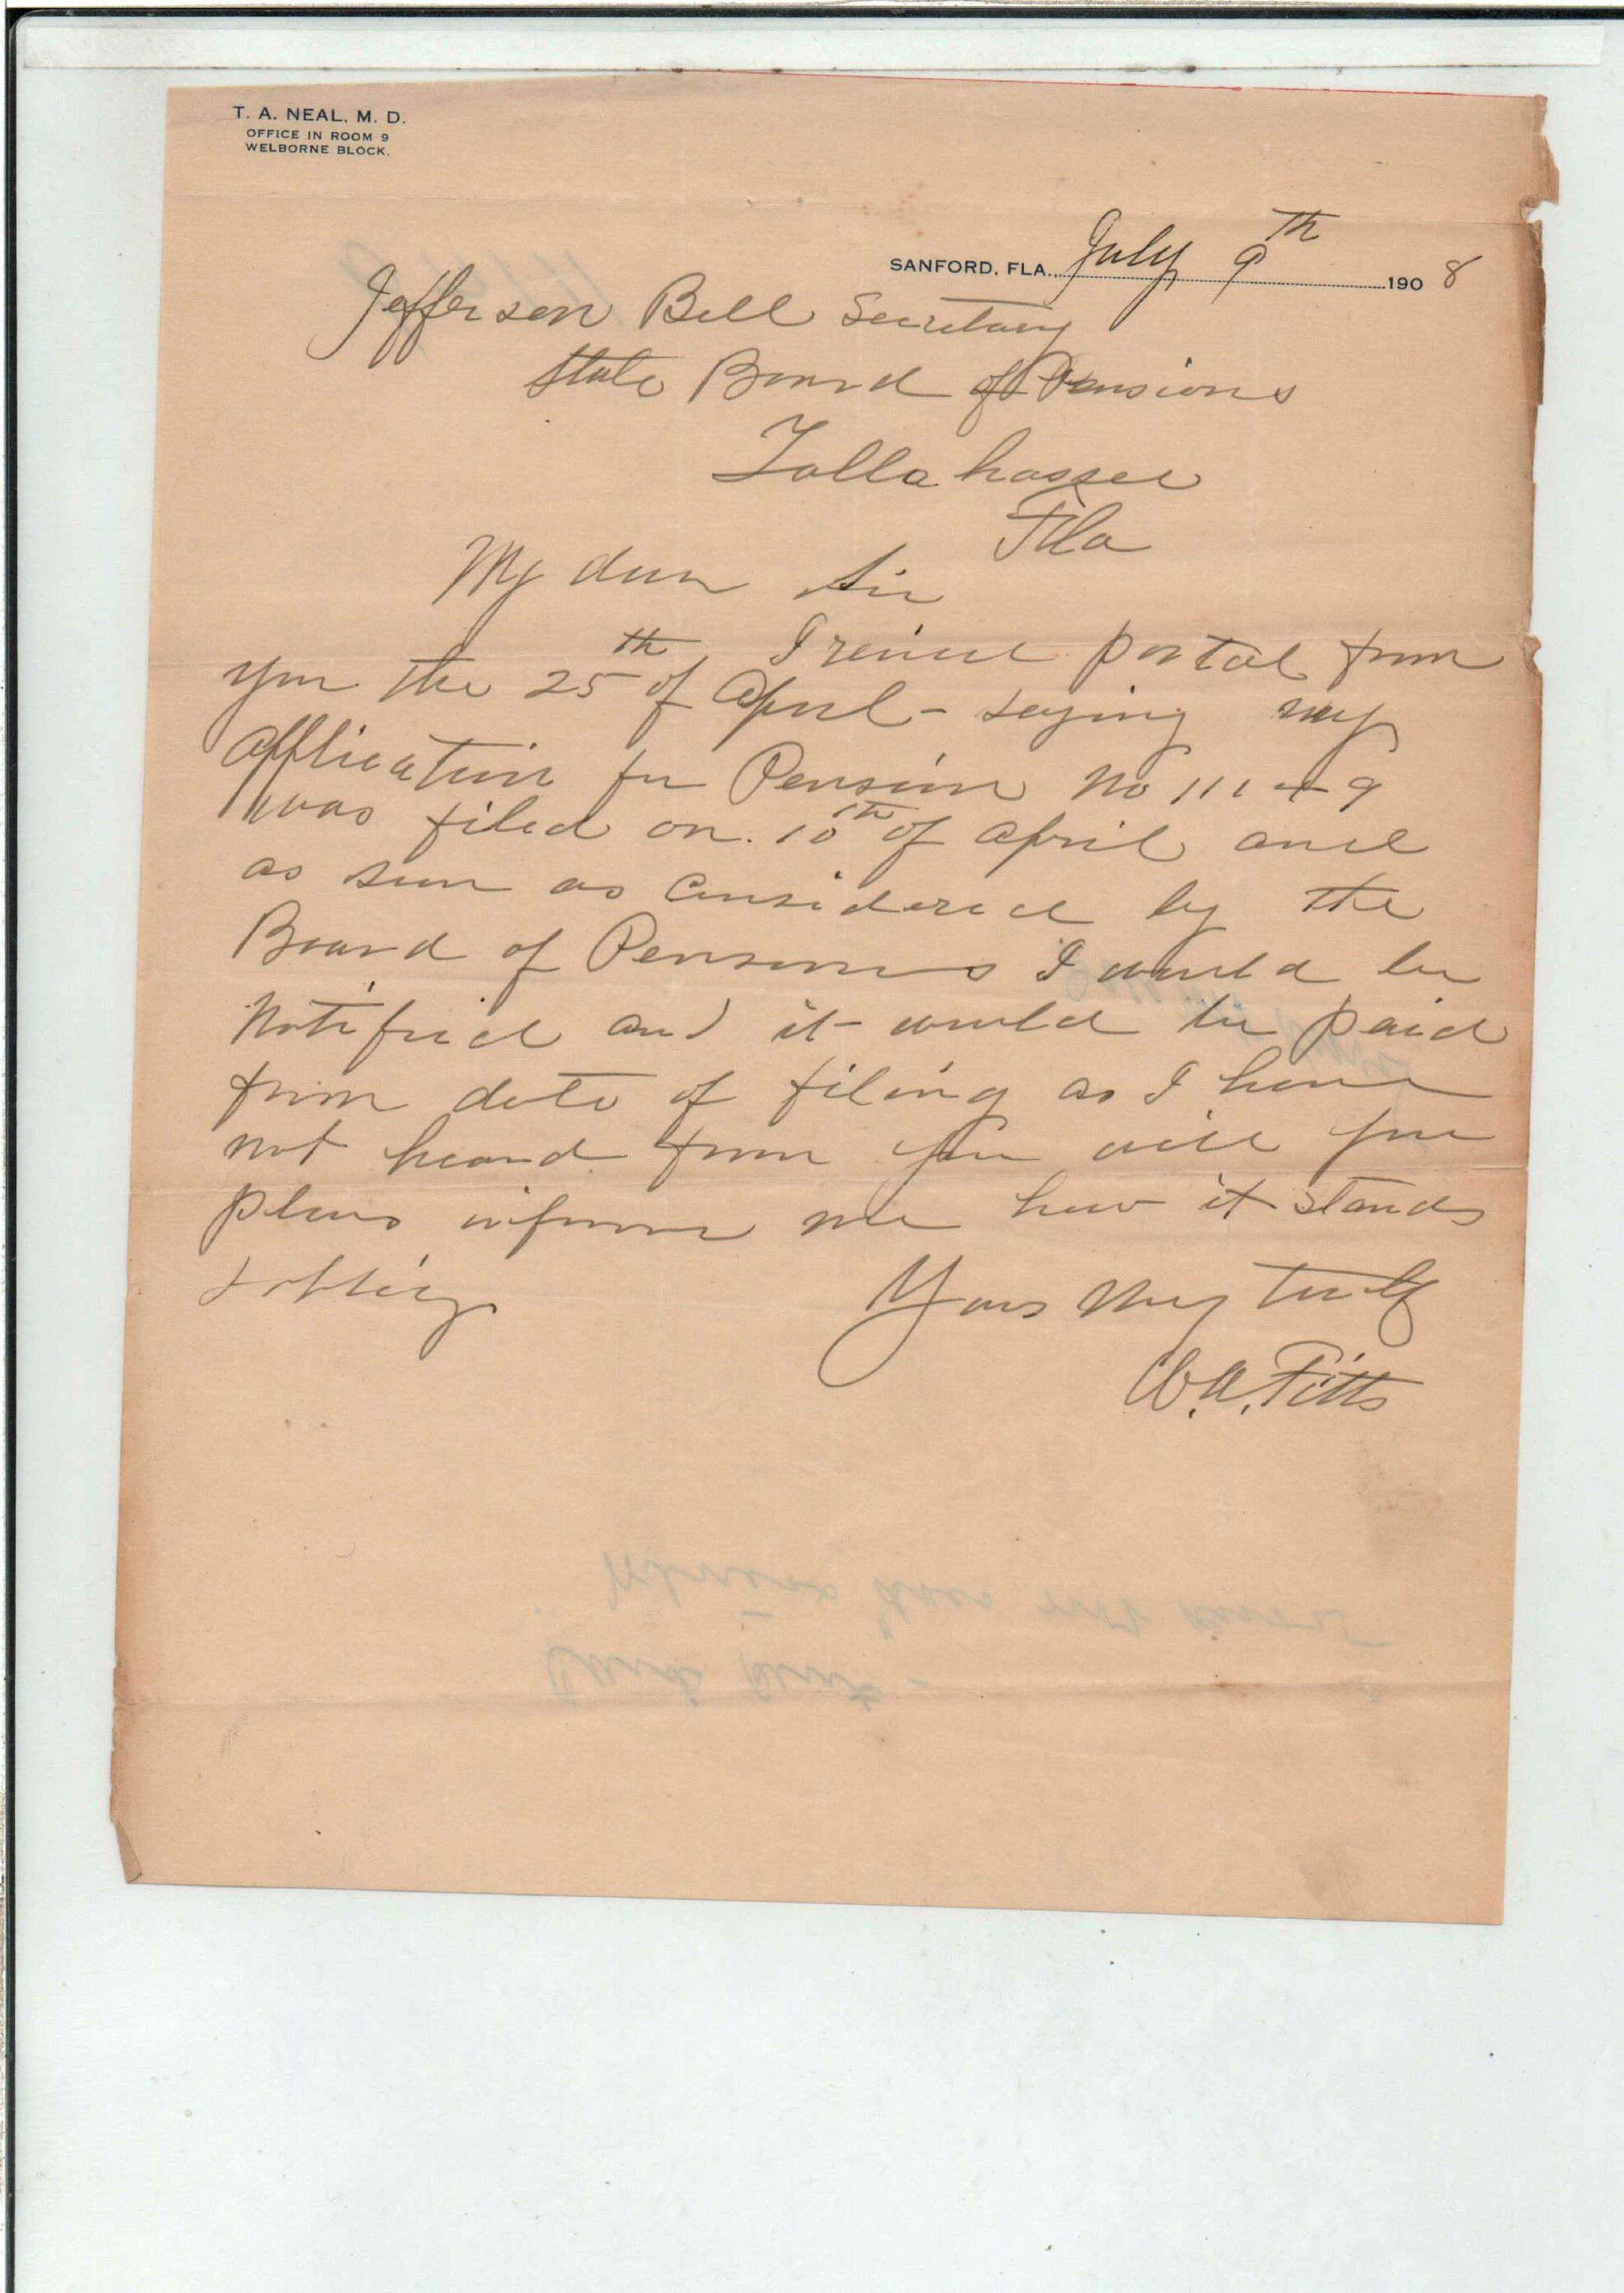 T. A. NEAL, M. D.
OFFICE IN ROOM 9
WELBORNE BLOCK.
SANFORD, FLA. July 9th 1908
Jefferson Bell Secretary
State Board of Pensions
Tallahassee
Fla
My dear Sir
I recived postal from
you the 25th of April - saying my
application for Pension No 11149
was filed on 10th of April and
as soon as considered by the
Board of Pensions I would be
Notified and it would be paid
from date of filing as I have
not heard from you will you
please inform me how it stands
Yours Very truly
W. A. Pitts